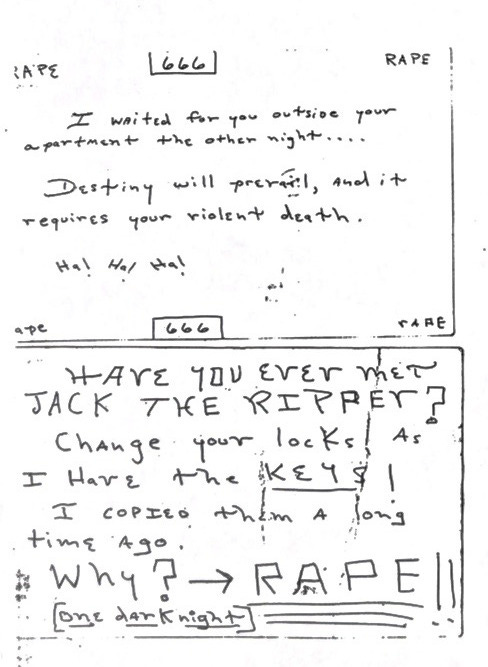 RAPE 666 RAPE
I waited for you outside your
apartment the other night....
Destiny will prevail, and it
requires your violent death.
Ha! Ha! Ha!
ape 666 rAPE
HAVE YOU EVER MET
JACK THE RIPPER?
Change your locks As
I Have the KEYS!
I COPIED them A long
time Ago.
Why? → RAPE!!
[One dark night]